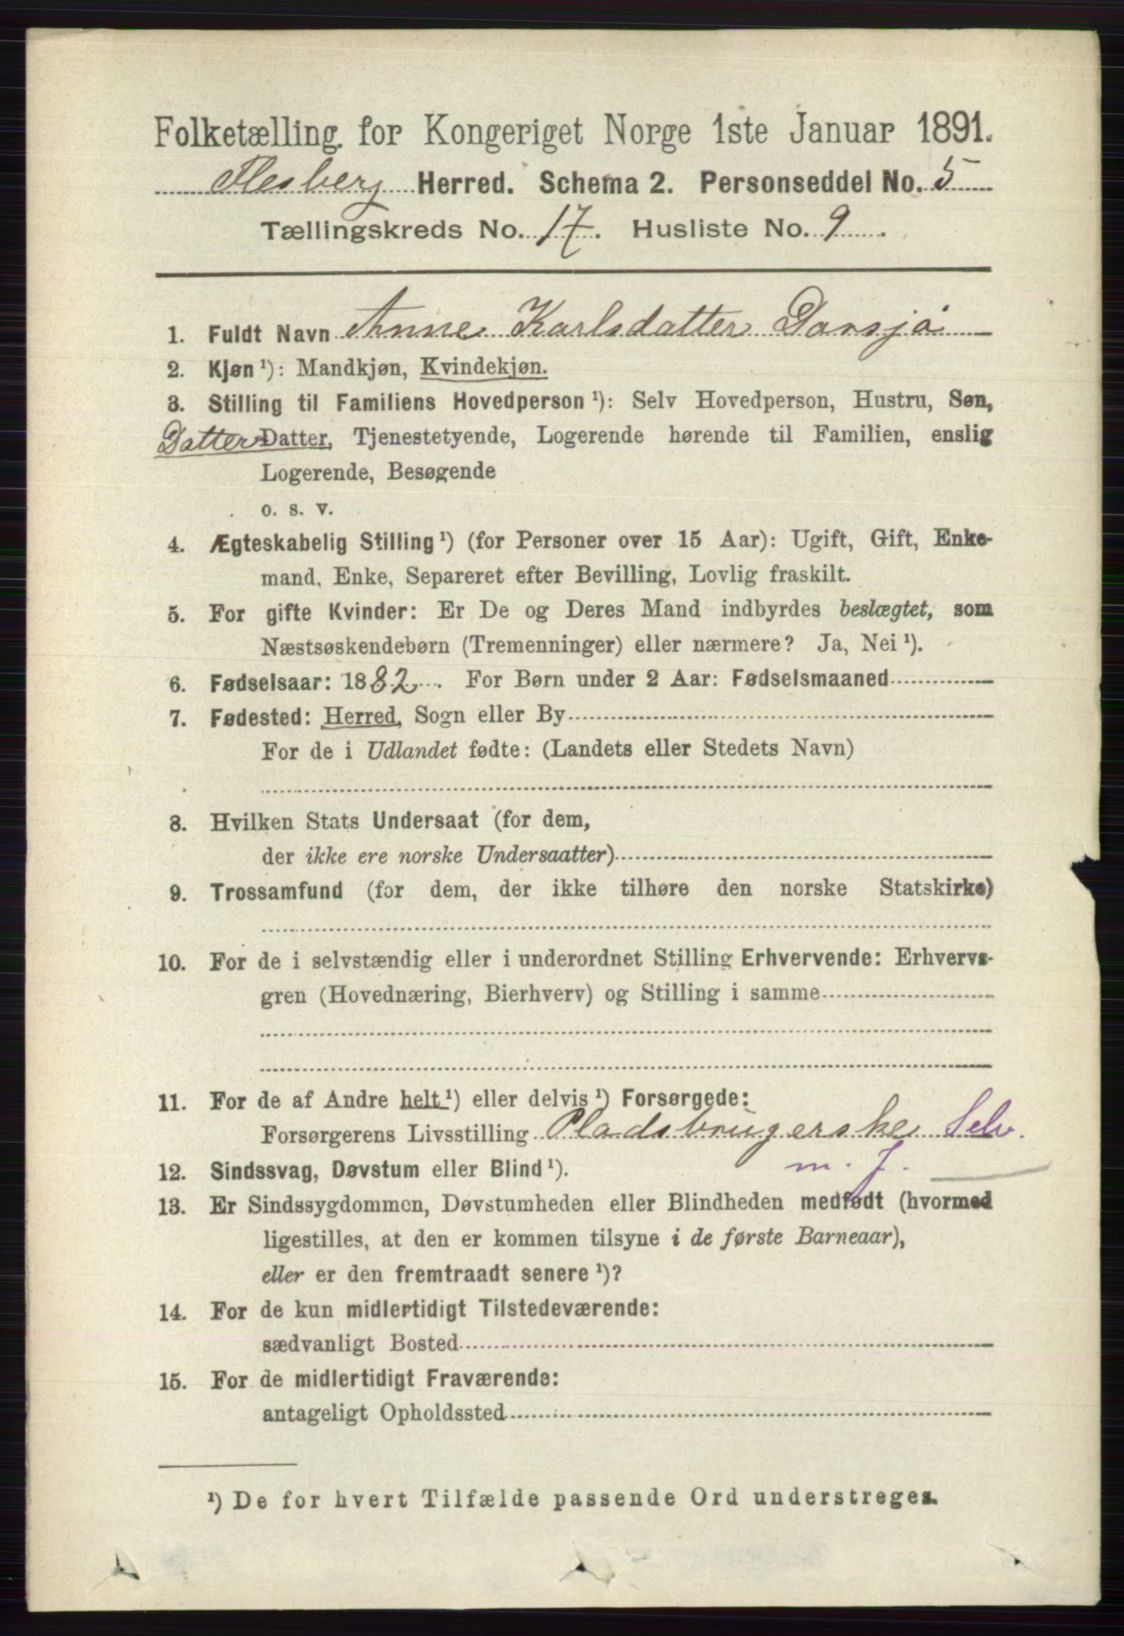 Folketælling for Kongeriget Norge 1ste Januar 1891.
Flesberg Herred. Schema 2. Personseddel No. 5
Tællingskreds No. 17. Husliste No. 9.
1. Fuldt Navn Anne Karlsdatter Dansjø
2. Kjøn ¹): Mandkjøn, Kvindekjøn.
3. Stilling til Familiens Hovedperson ¹): Selv Hovedperson, Hustru, Søn,
Datter Datter, Tjenestetyende, Logerende hørende til Familien, enslig
Logerende, Besøgende
o. s. v.
4. Ægteskabelig Stilling ¹) (for Personer over 15 Aar): Ugift, Gift, Enke-
mand, Enke, Separeret efter Bevilling, Lovlig fraskilt.
5. For gifte Kvinder: Er De og Deres Mand indbyrdes beslægtet, som
Næstsøskendebørn (Tremenninger) eller nærmere? Ja, Nei ¹).
6. Fødselsaar: 1882. For Børn under 2 Aar: Fødselsmaaned
7. Fødested: Herred, Sogn eller By
For de i Udlandet fødte: (Landets eller Stedets Navn)
8. Hvilken Stats Undersaat (for dem,
der ikke ere norske Undersaatter)
9. Trossamfund (for dem, der ikke tilhøre den norske Statskirke)
10. For de i selvstændig eller i underordnet Stilling Erhvervende: Erhvervs-
gren (Hovednæring, Bierhverv) og Stilling i samme
11. For de af Andre helt ¹) eller delvis ¹) Forsørgede:
Forsørgerens Livsstilling Pladsbrugerske Selv.
12. Sindssvag, Døvstum eller Blind ¹). m. J.
13. Er Sindssygdommen, Døvstumheden eller Blindheden medfødt (hvormed
ligestilles, at den er kommen tilsyne i de første Barneaar),
eller er den fremtraadt senere ¹)?
14. For de kun midlertidigt Tilstedeværende:
sædvanligt Bosted
15. For de midlertidigt Fraværende:
antageligt Opholdssted
¹) De for hvert Tilfælde passende Ord understreges.